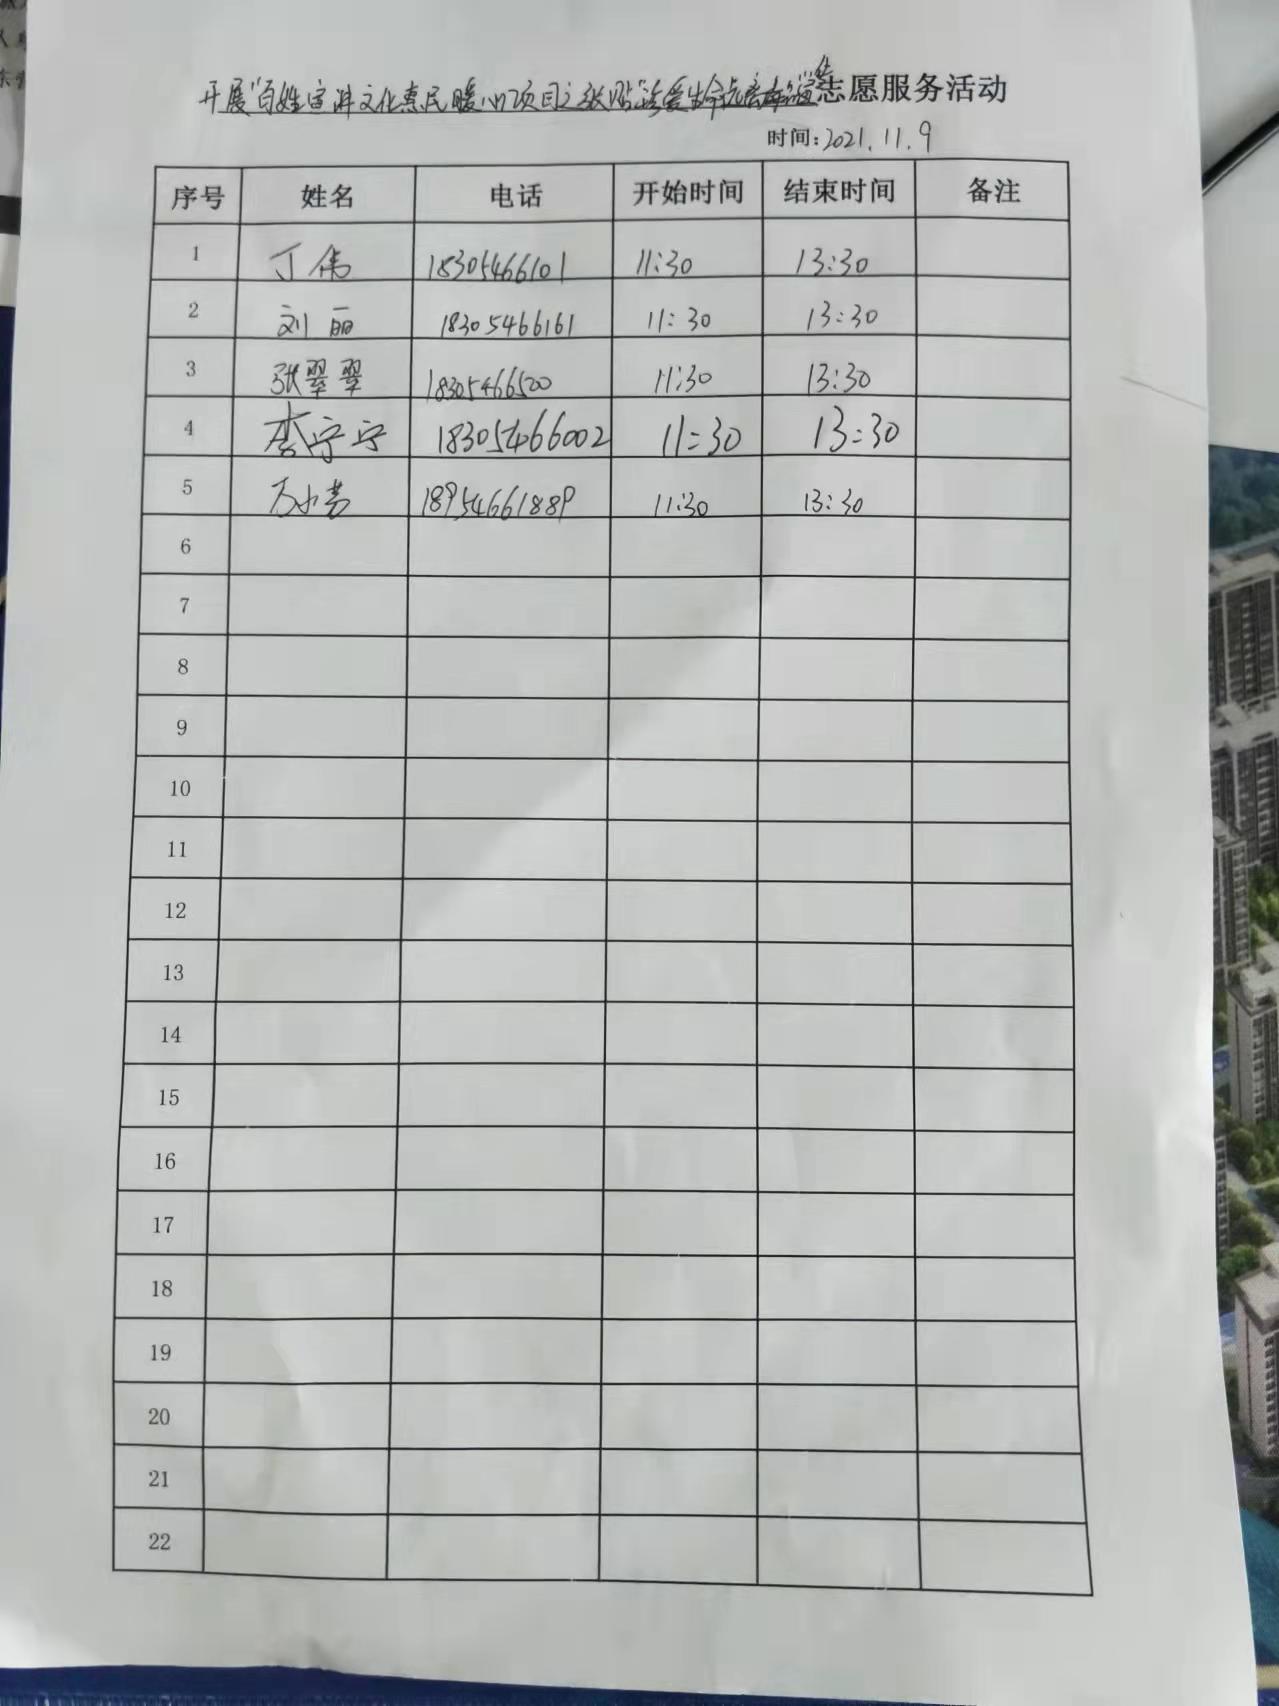 开展"百姓宣讲文化惠民暖心"项目之张贴"珍爱生命远离毒品"宣传志愿服务活动
时间:2021.11.9
序号 姓名 电话 开始时间 结束时间 备注
1 丁伟 18305466101 11:30 13:30
2 刘丽 18305466161 11:30 13:30
3 张翠翠 18305466500 11:30 13:30
4 李宁宁 18305466002 11:30 13:30
5 万小芳 18954661889 11:30 13:30
6
7
8
9
10
11
12
13
14
15
16
17
18
19
20
21
22